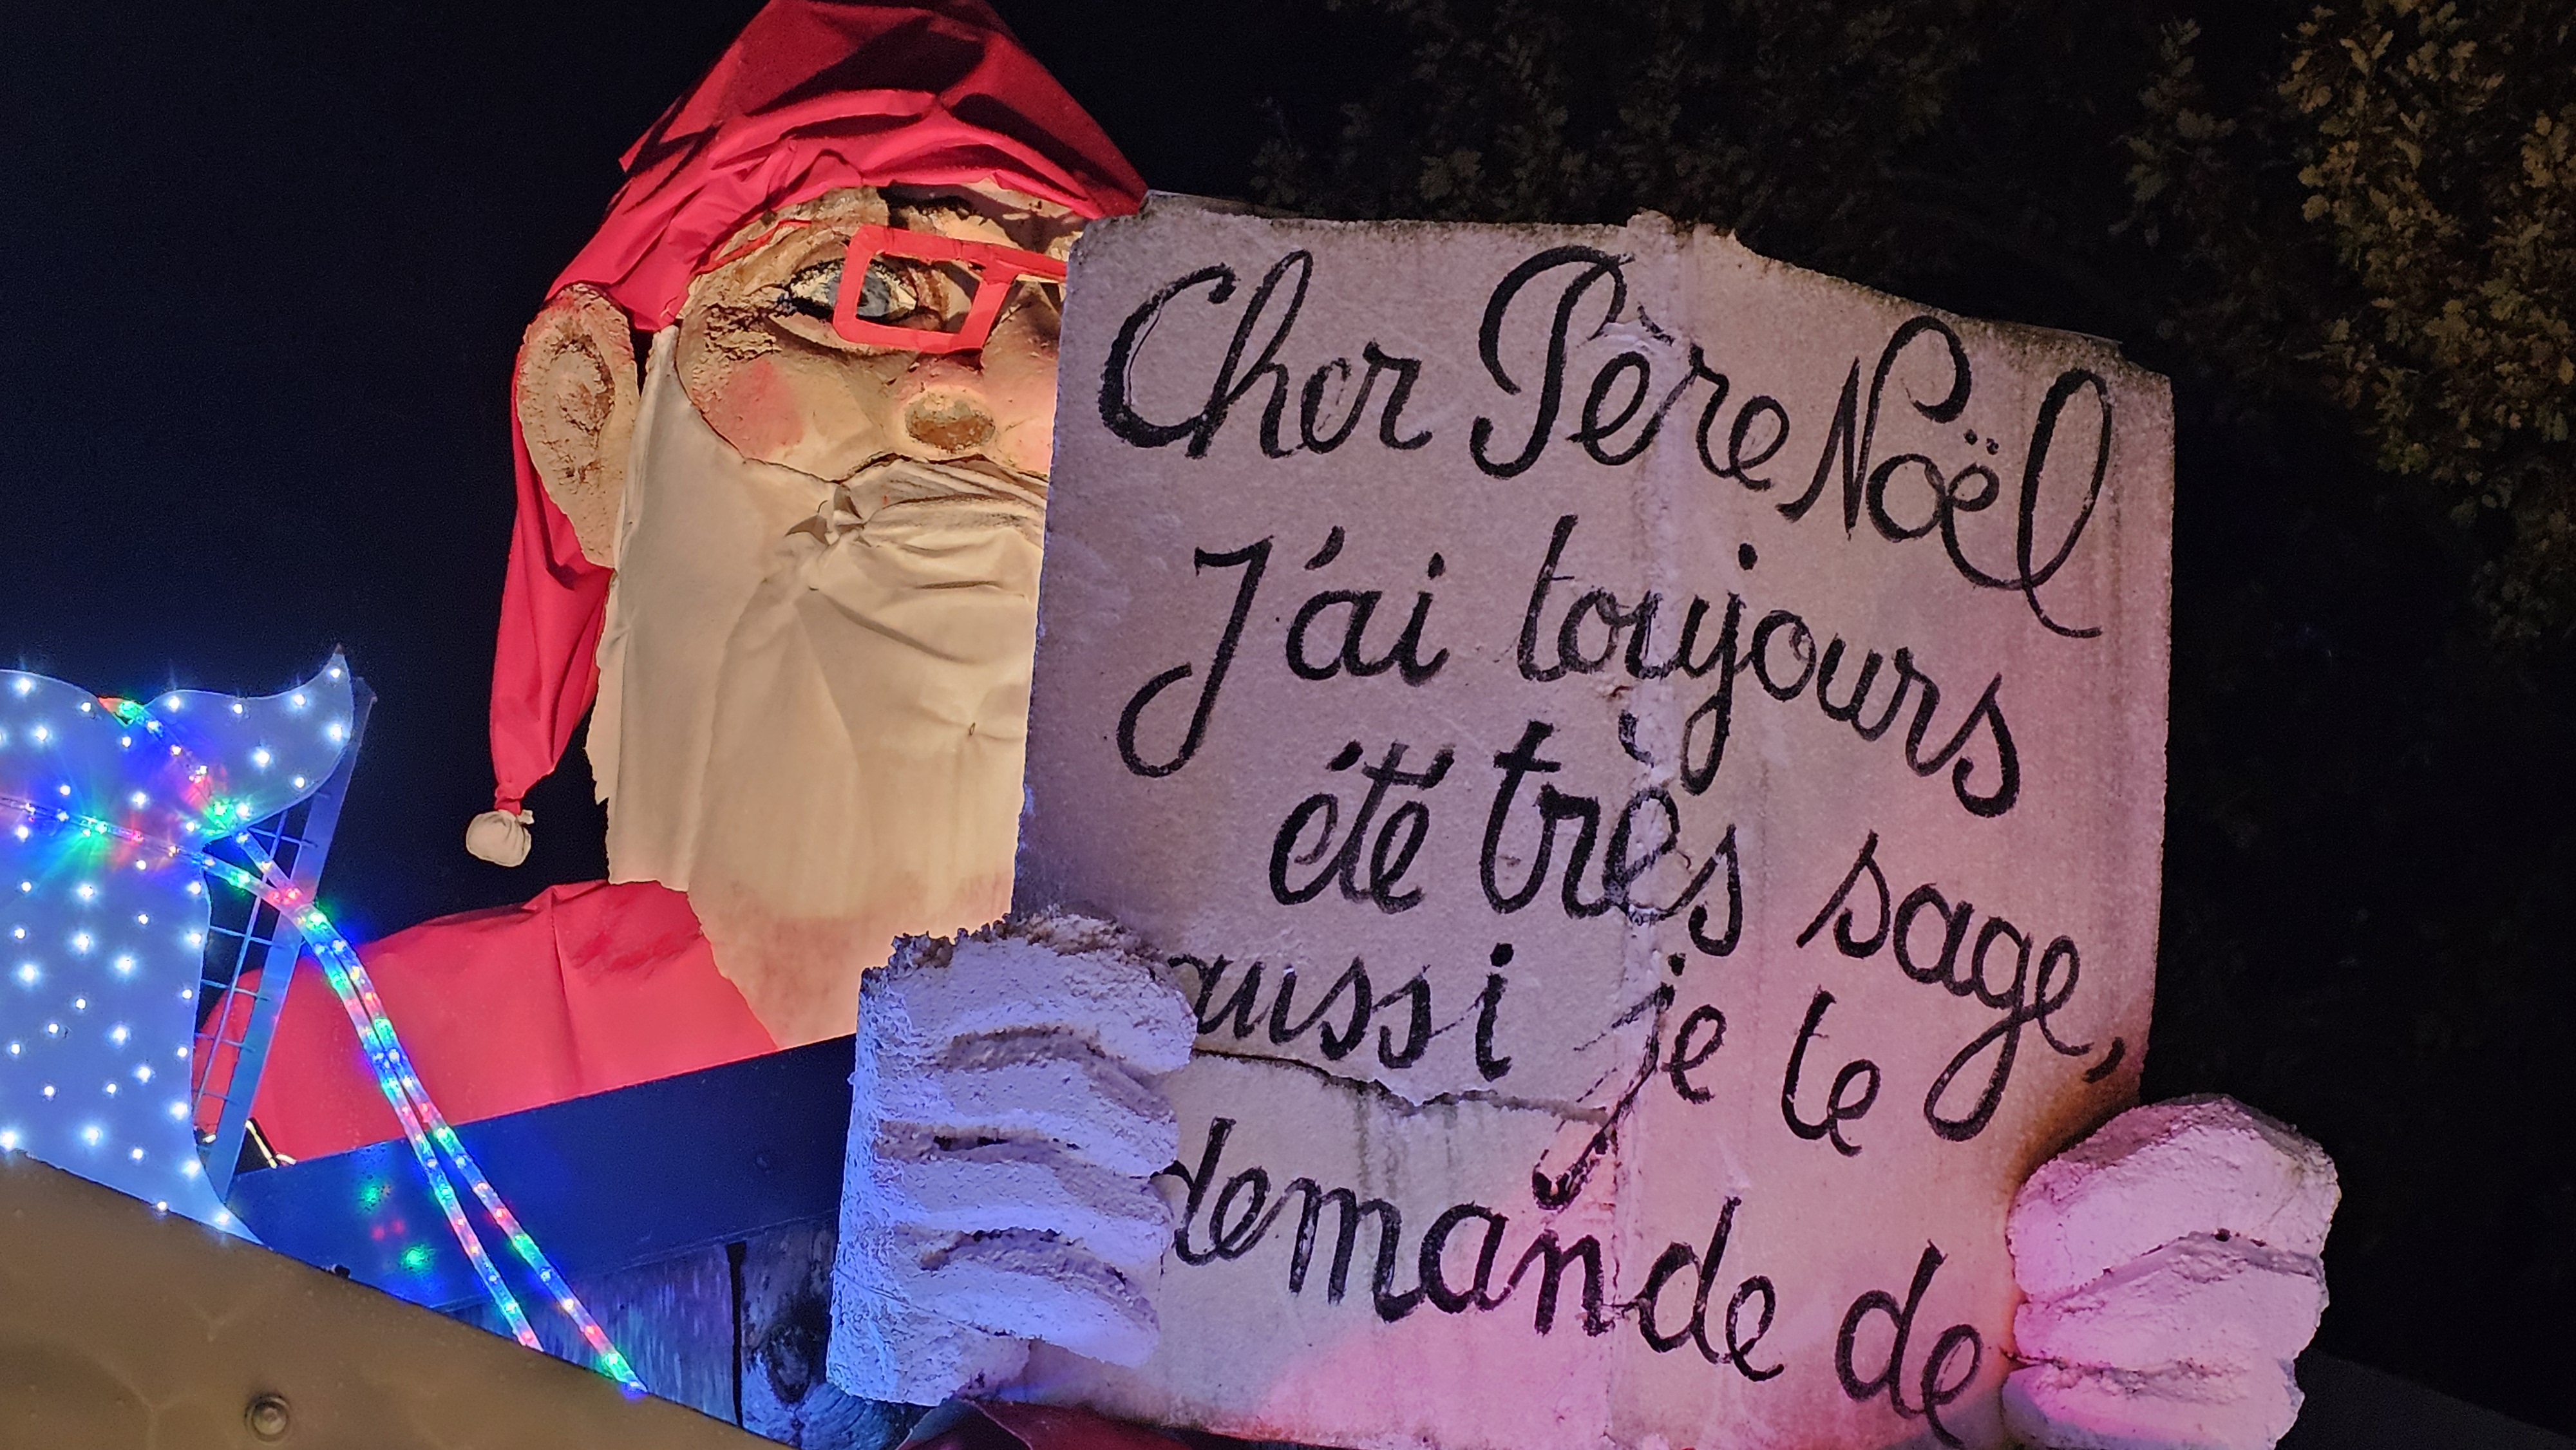 Cher Père Noël
J'ai toujours
été très sage,
aussi je te
demande de